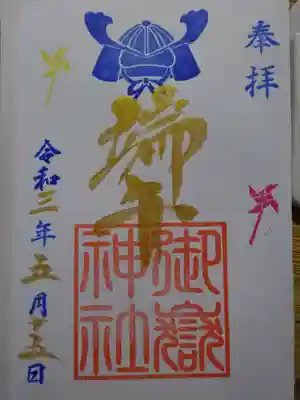 奉拝
端午
御嶽神社
令和三年五月十五日